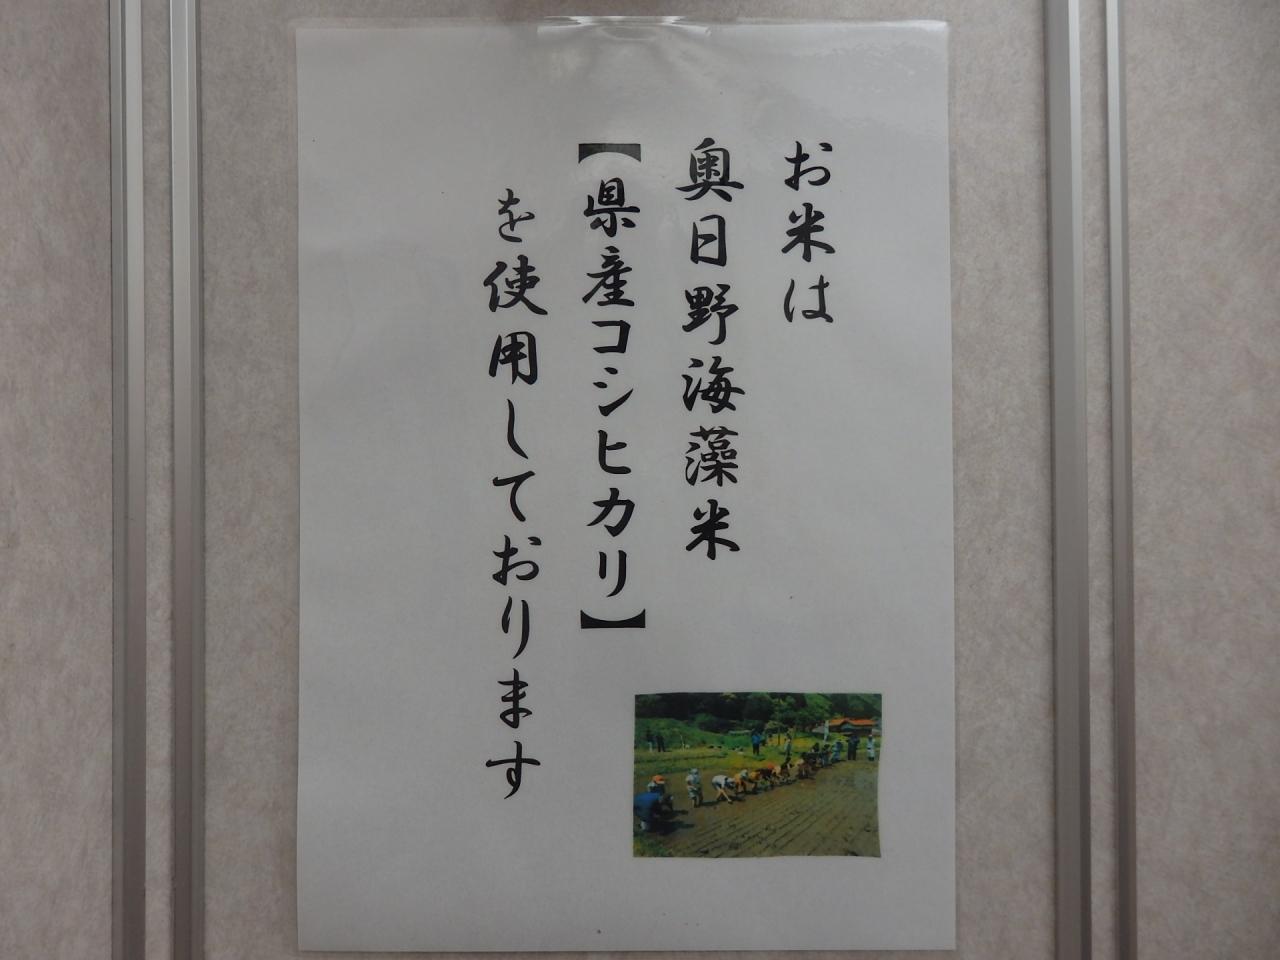 お米は
奥日野海藻米
【県産コシヒカリ】
を使用しております